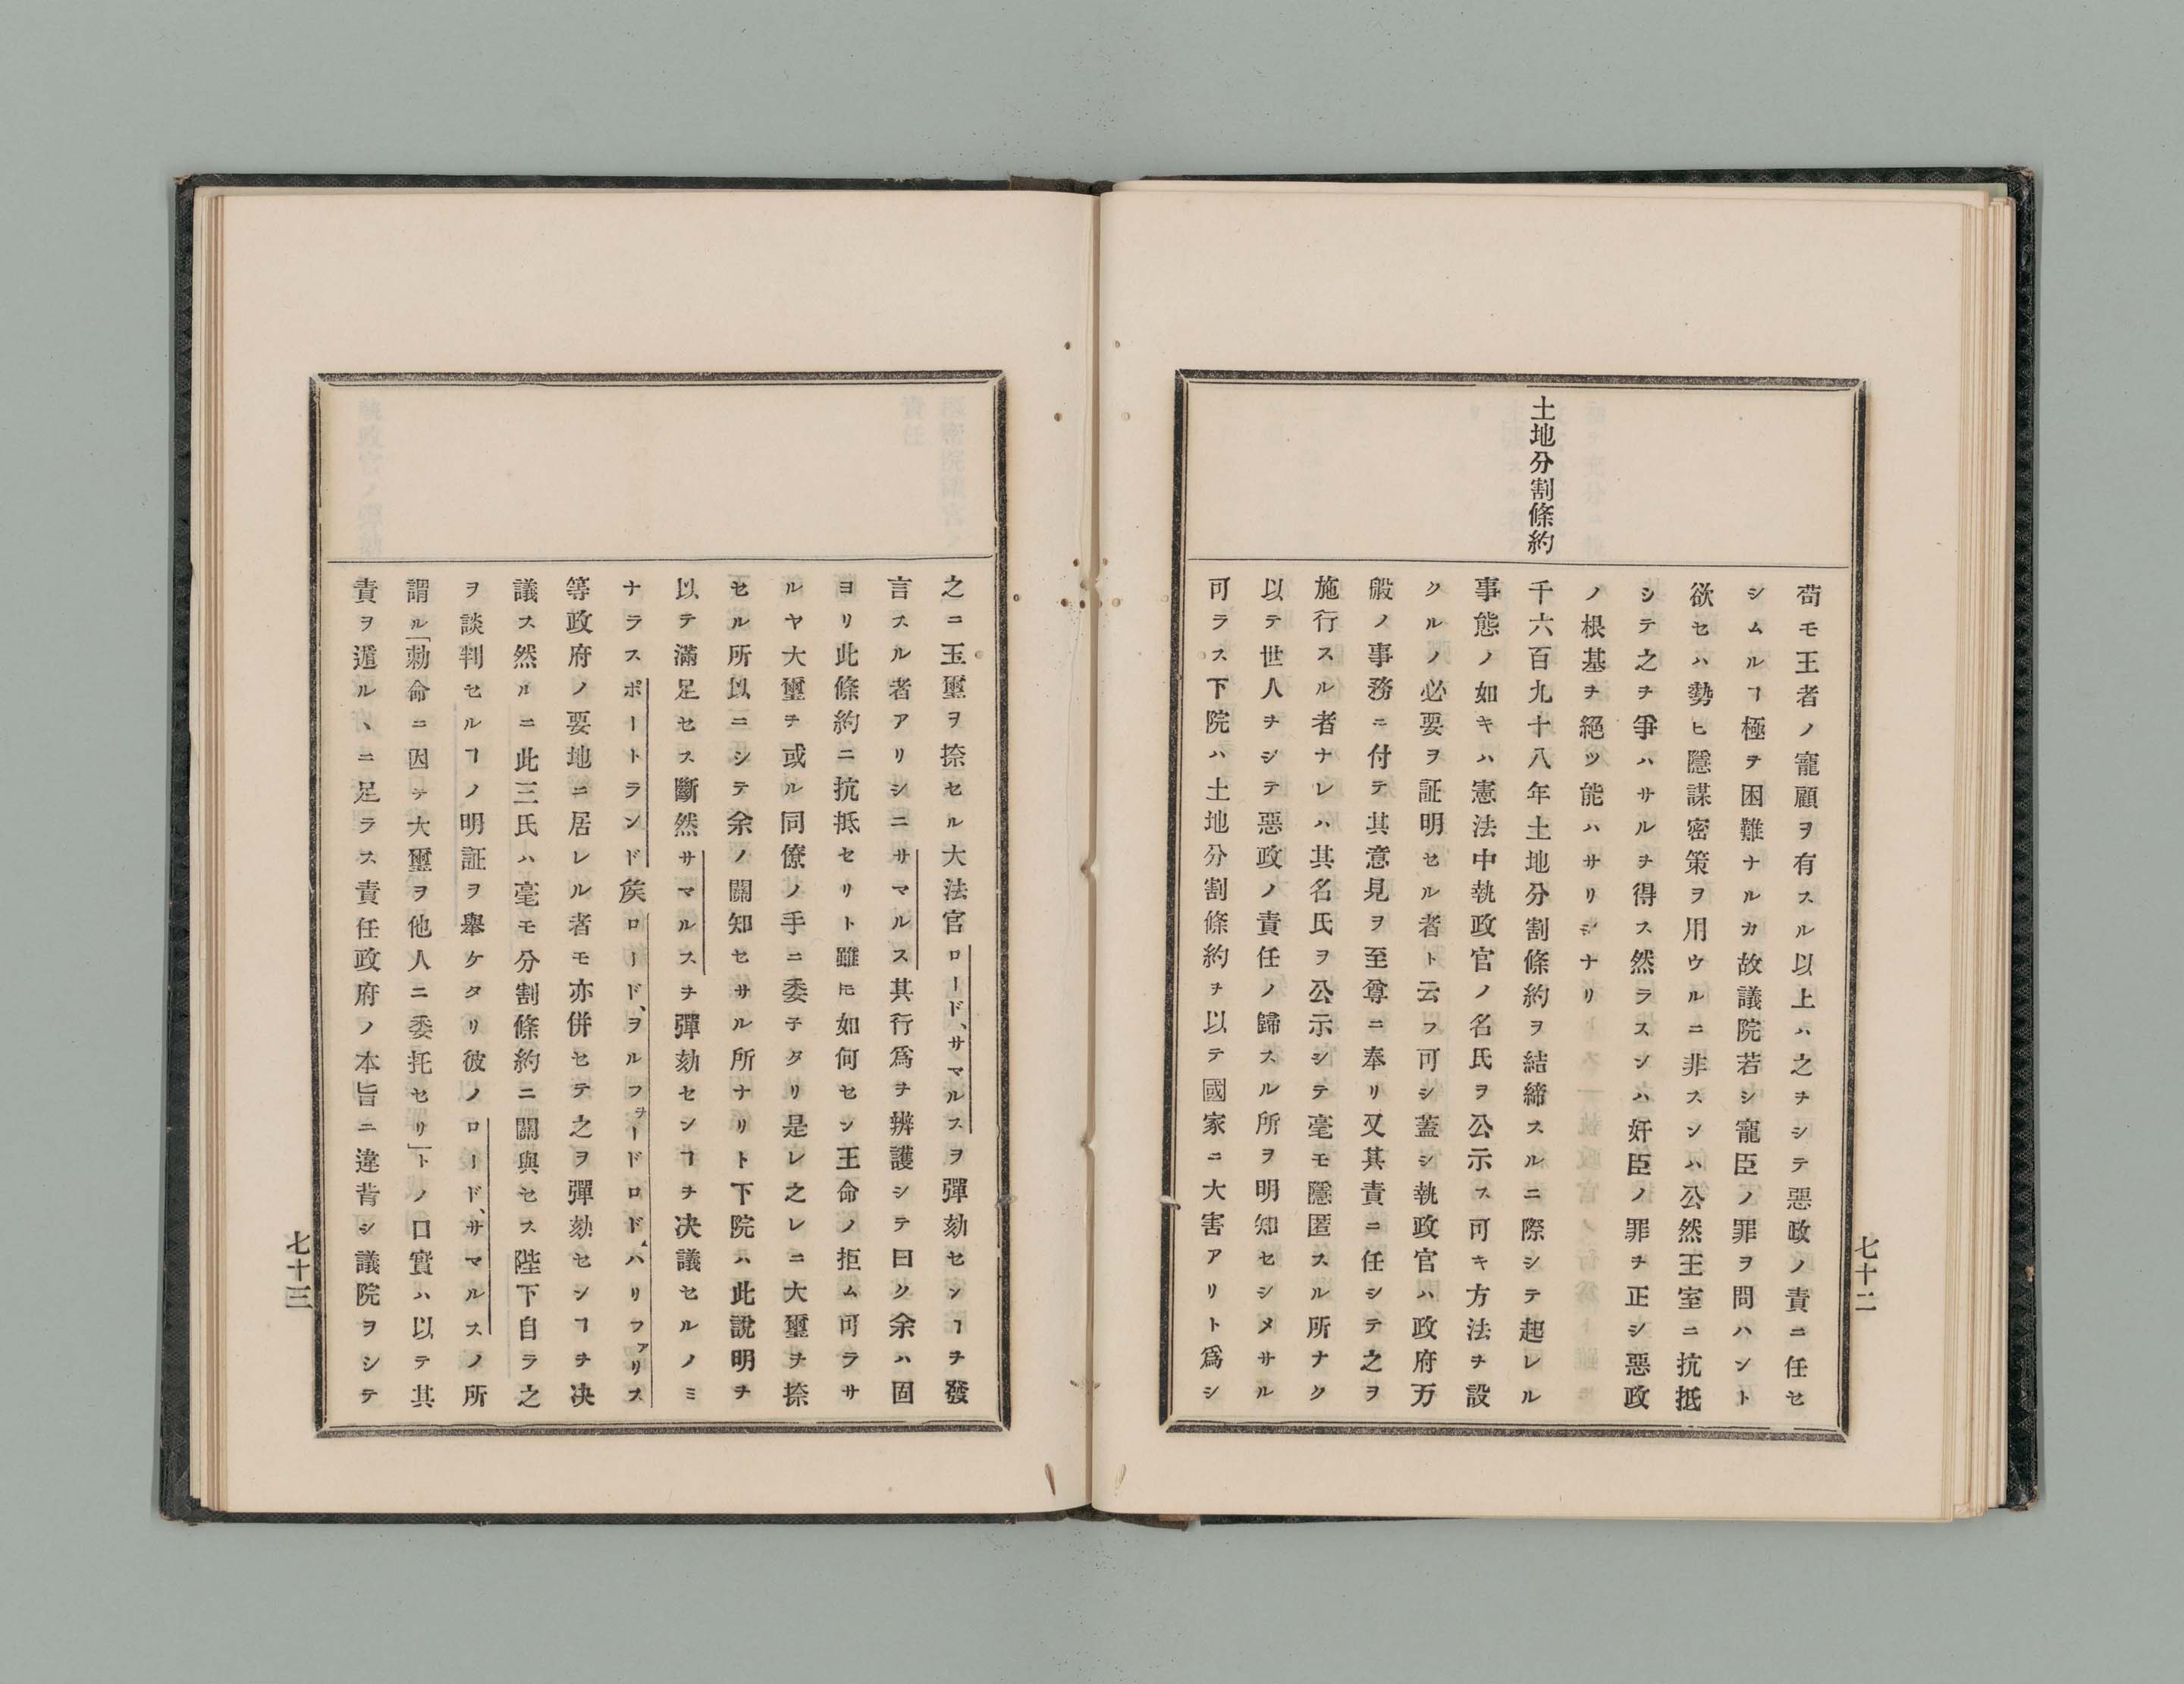 土地分割條約
苟モ王者ノ寵顧ヲ有スル以上ハ之ヲシテ惡政ノ責ニ任セ
シムルヿ極テ困難ナルカ故議院若シ寵臣ノ罪ヲ問ハント
欲セハ勢ヒ隱謀密策ヲ用ウルニ非スンハ公然王室ニ抗抵
シテ之ヲ爭ハサルヲ得ス然ラスンハ奸臣ノ罪ヲ正シ惡政
ノ根基ヲ絕ツ能ハサリシナリ
千六百九十八年土地分割條約ヲ結締スルニ際シテ起レル
事態ノ如キハ憲法中執政官ノ名氏ヲ公示ス可キ方法ヲ設
クルノ必要ヲ証明セル者ト云フ可シ蓋シ執政官ハ政府万
般ノ事務ニ付テ其意見ヲ至尊ニ奉リ又其責ニ任シテ之ヲ
施行スル者ナレハ其名氏ヲ公示シテ毫モ隱匿スル所ナク
以テ世人ヲシテ惡政ノ責任ノ歸スル所ヲ明知セシメサル
可ラス下院ハ土地分割條約ヲ以テ國家ニ大害アリト爲シ
七十二
之ニ玉璽ヲ捺セル大法官ロード、サマルスヲ彈劾センヿヲ發
言スル者アリシニサマルス其行爲ヲ辨護シテ曰ク余ハ固
ヨリ此條約ニ抗抵セリト雖𪜈如何セン王命ノ拒ム可ラサ
ルヤ大璽ヲ或ル同僚ノ手ニ委子タリ是レ之レニ大璽ヲ捺
セル所以ニシテ余ノ關知セサル所ナリト下院ハ此說明ヲ
以テ滿足セス斷然サマルスヲ彈劾センヿヲ决議セルノミ
ナラスポートランド矦ロード、ヲルフヲードロド、ハリファリス
等政府ノ要地ニ居レル者モ亦併セテ之ヲ彈劾センヿヲ决
議ス然ルニ此三氏ハ毫モ分割條約ニ關與セス陛下自ラ之
ヲ談判セルヿノ明証ヲ擧ケタリ彼ノロード、サマルスノ所
謂ル「勅命ニ因テ大璽ヲ他人ニ委托セリ」トノ口實ハ以テ其
責ヲ遁ルヽニ足ラス責任政府ノ本旨ニ違背シ議院ヲシテ
七十三